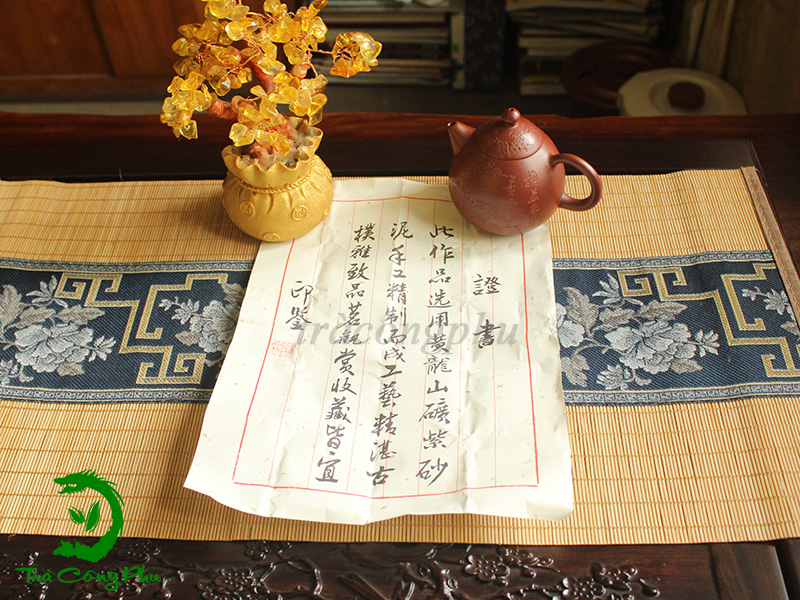 證書
此作品选用黄龍山礦紫砂
泥手工精制而成工藝精湛古
樸雅致品茗觀赏收藏皆宜
印鉴
tràcôngphu
Trà Công Phu